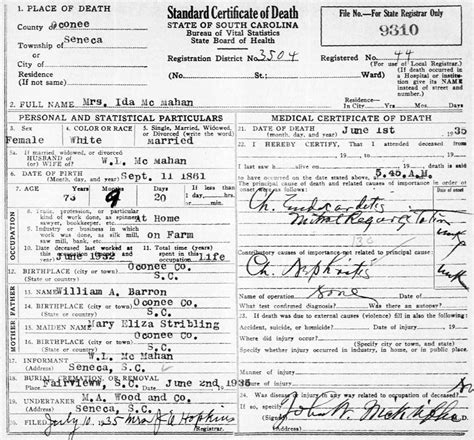 1. PLACE OF DEATH
County Oconee
Township of Seneca
or
City of
Residence
Standard Certificate of Death
STATE OF SOUTH CAROLINA
Bureau of Vital Statistics
State Board of Health
Registration District No. 3504
File No.—For State Registrar Only
9310
Registered No. 44
(For use of Local Registrar)
(If death occurred in a Hospital or institution give its NAME instead of street and number.)
2. FULL NAME Mrs. Ida Mc Mahan
PERSONAL AND STATISTICAL PARTICULARS
3. SEX
Female
4. COLOR OR RACE
White
5. Single, Married, Widowed, or Divorced (write the word)
Married
5a. If married, widowed, or divorced
HUSBAND of
(or) WIFE of
W.L. Mc Mahan
6. DATE OF BIRTH
(Month, day, and year) Sept. 11 1861
7. AGE
73 9 20
8. Trade, profession, or particular kind of work done, as spinner, sawyer, bookkeeper, etc.
at Home
9. Industry or business in which work was done, as silk mill, saw mill, bank, etc.
on Farm
10. Date deceased last worked at this occupation (month and year)
June 1932
11. Total time (years) spent in this occupation
Life
OCCUPATION
12. BIRTHPLACE (city or town) Oconee Co.
(State or country) S.C.
FATHER
13. NAME William A. Barron
14. BIRTHPLACE (city or town) Oconee Co.
(State or country) S.C.
MOTHER
15. MAIDEN NAME Mary Eliza Stribling
16. BIRTHPLACE (city or town) Oconee Co.
(State or country) S.C.
17. INFORMANT W.L. Mc Mahan
(Address) Seneca, S.C.
18. BURIAL, CREMATION, OR REMOVAL
Fairview, S.C. June 2nd, 1935
19. UNDERTAKER M.A. Wood and Co.
(Address) Seneca, S.C.
20. FILED July 10, 1935 Mrs J A Hopkins
MEDICAL CERTIFICATE OF DEATH
21. DATE OF DEATH (month, day, and year) June 1st 1935
22. I HEREBY CERTIFY, That I attended deceased from
I last saw h alive on death is said
to have occurred on the date stated above, at 5.45 A.M.
The principal cause of death and related causes of
Ch. Endocarditis
Mitral Regurgitation
Contributory causes of importance not related to principal cause:
Ch. Nephritis
Name of operation none
What test confirmed diagnosis? Was there an autopsy?
23. If death was due to external causes (violence) fill in also the following:
Accident, suicide, or homicide? Date of injury
Where did injury occur?
Specify whether injury occurred in industry, in home, or in public place.
Manner of injury
Nature of injury
24. Was disease or injury in any way related to occupation of deceased?
If so, specify
(Signed) John W.